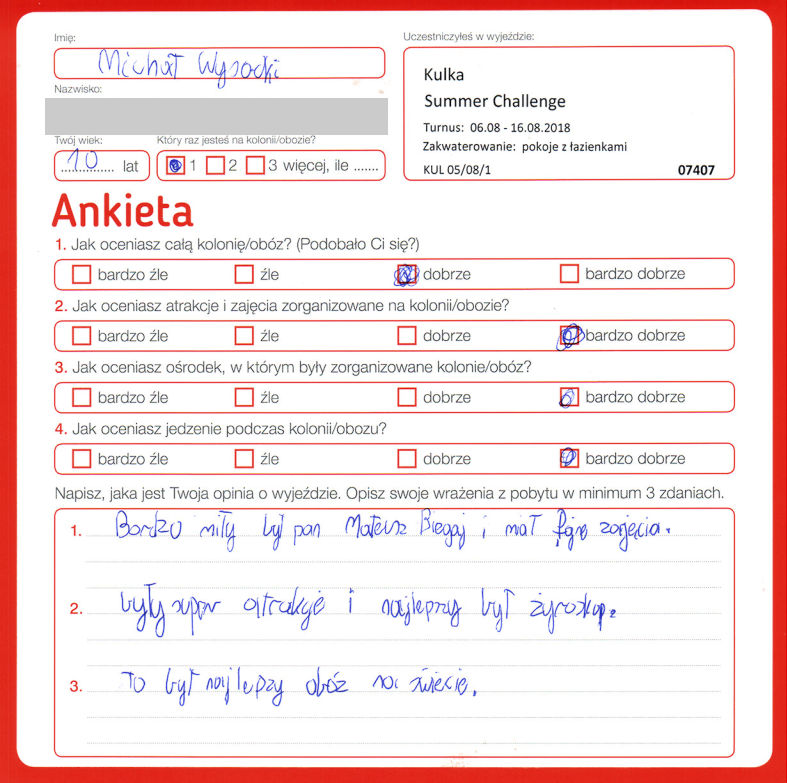 Imię:
Michał Wysocki
Nazwisko:
Twój wiek:
10 lat
Który raz jesteś na kolonii/obozie?
1 2 3 więcej, ile .......
Uczestniczyłeś w wyjeździe:
Kulka
Summer Challenge
Turnus: 06.08 - 16.08.2018
Zakwaterowanie: pokoje z łazienkami
KUL 05/08/1 07407
Ankieta
1. Jak oceniasz całą kolonię/obóz? (Podobało Ci się?)
bardzo źle źle dobrze bardzo dobrze
2. Jak oceniasz atrakcje i zajęcia zorganizowane na kolonii/obozie?
bardzo źle źle dobrze bardzo dobrze
3. Jak oceniasz ośrodek, w którym były zorganizowane kolonie/obóz?
bardzo źle źle dobrze bardzo dobrze
4. Jak oceniasz jedzenie podczas kolonii/obozu?
bardzo źle źle dobrze bardzo dobrze
Napisz, jaka jest Twoja opinia o wyjeździe. Opisz swoje wrażenia z pobytu w minimum 3 zdaniach.
1. Bardzo miły był pan Mateusz Biegaj i miał fajne zajęcia.
2. były super atrakcje i najlepszy był żyroskop.
3. To był najlepszy obóz na świecie.